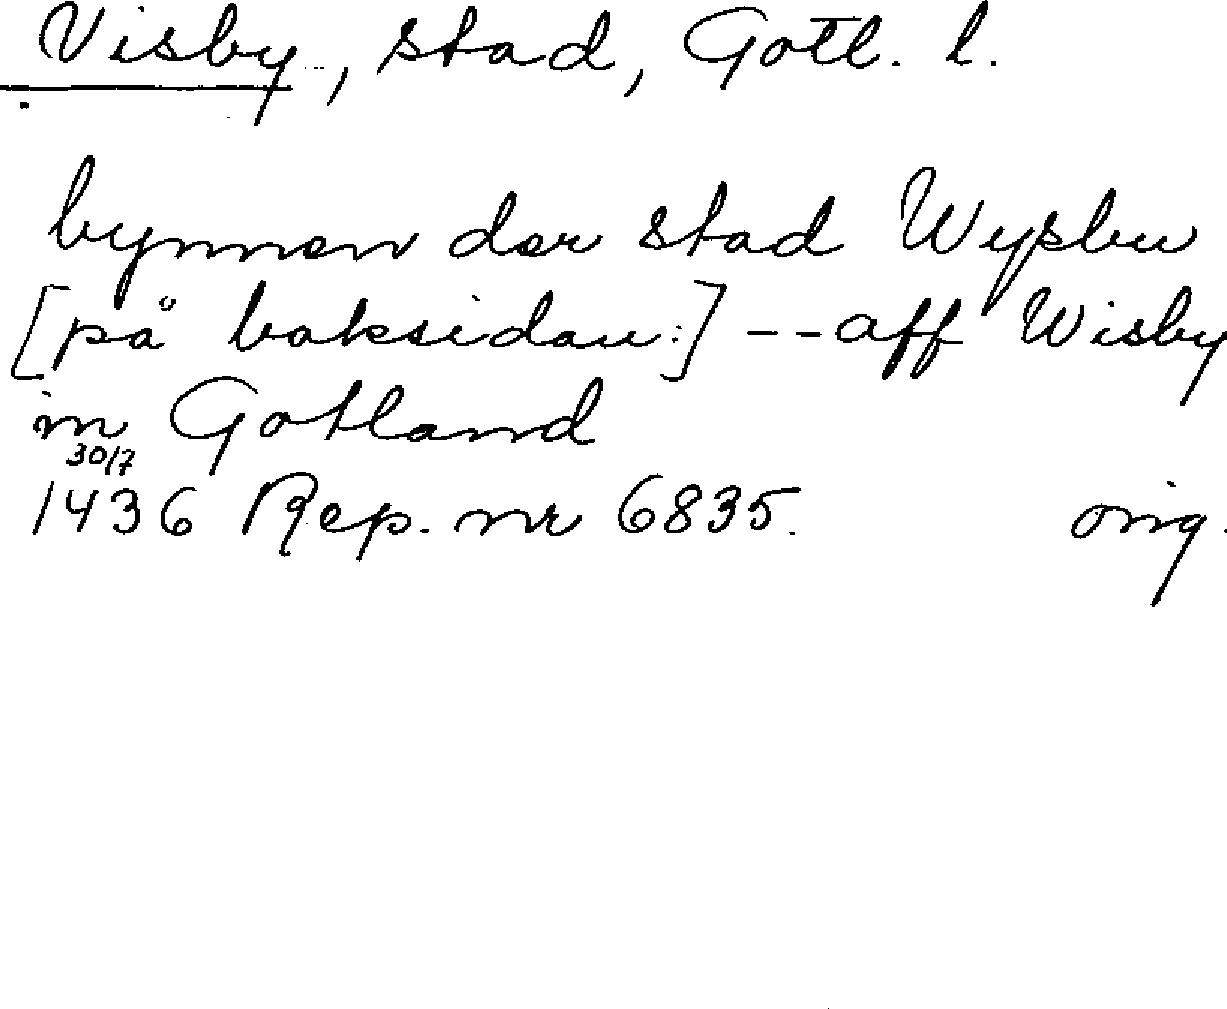 Visby, stad, Gotl. l.
bynnen der stad Wysbu
[på baksidan:] -- aff Wisby
in Gotland
30/7
1436 Rep. nr 6835. orig.